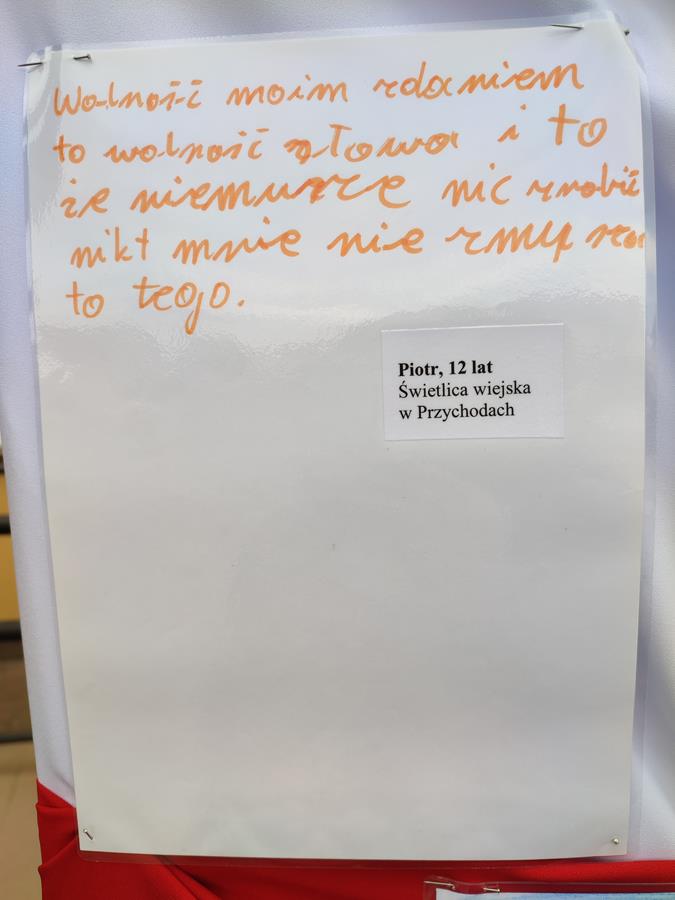 Wolność moim zdaniem
to wolność słowa i to
że niemuszę nic zrobić
nikt mnie nie zmusza
to tego.
Piotr, 12 lat
Świetlica wiejska
w Przychodach